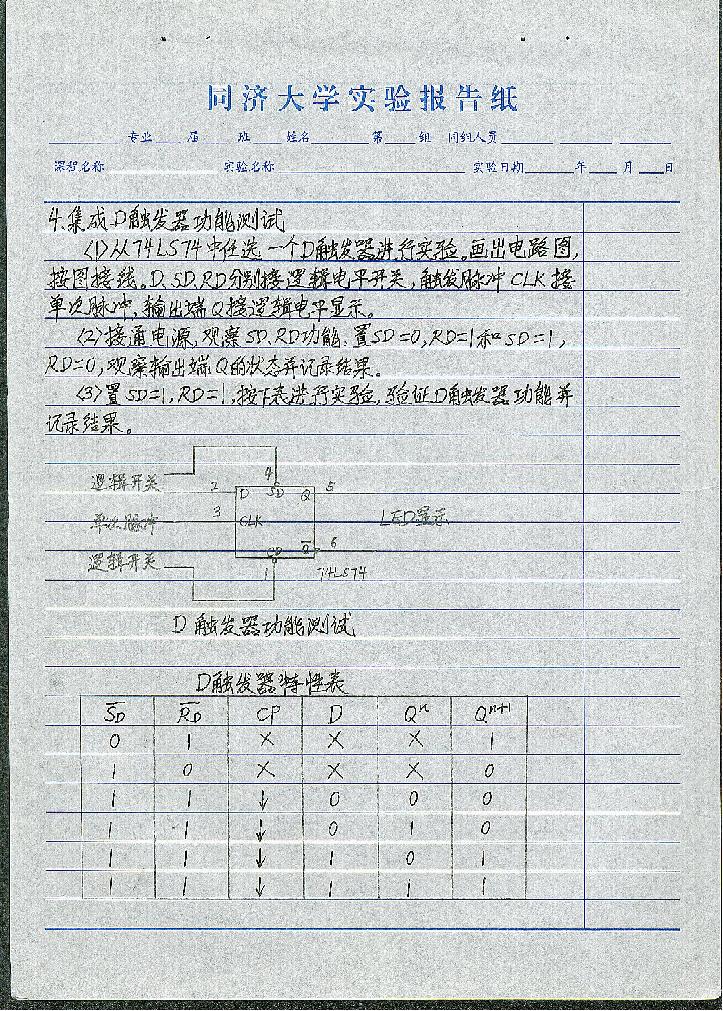 同济大学实验报告纸
专业 届 班 姓名 第 组 同组人员
课程名称 实验名称 实验日期 年 月 日
4.集成D触发器功能测试
(1)从74LS74中任选一个D触发器进行实验。画出电路图,
按图接线。D、SD、RD分别接逻辑电平开关,触发脉冲CLK接
单次脉冲,输出端Q接逻辑电平显示。
(2)接通电源,观察SD、RD功能.置SD=0,RD=1和SD=1,
RD=0,观察输出端Q的状态并记录结果。
(3)置SD=1,RD=1,按下表进行实验,验证D触发器功能并
记录结果。
4
逻辑开关 2 D SD Q 5
单次脉冲 3 CLK LED显示
逻辑开关 1 CD Q̅ 6
74LS74
D触发器功能测试
D触发器特性表
S̅D̅ R̅D̅ CP D Qⁿ Qⁿ⁺¹
0 1 × × × 1
1 0 × × × 0
1 1 ↓ 0 0 0
1 1 ↓ 0 1 0
1 1 ↓ 1 0 1
1 1 ↓ 1 1 1